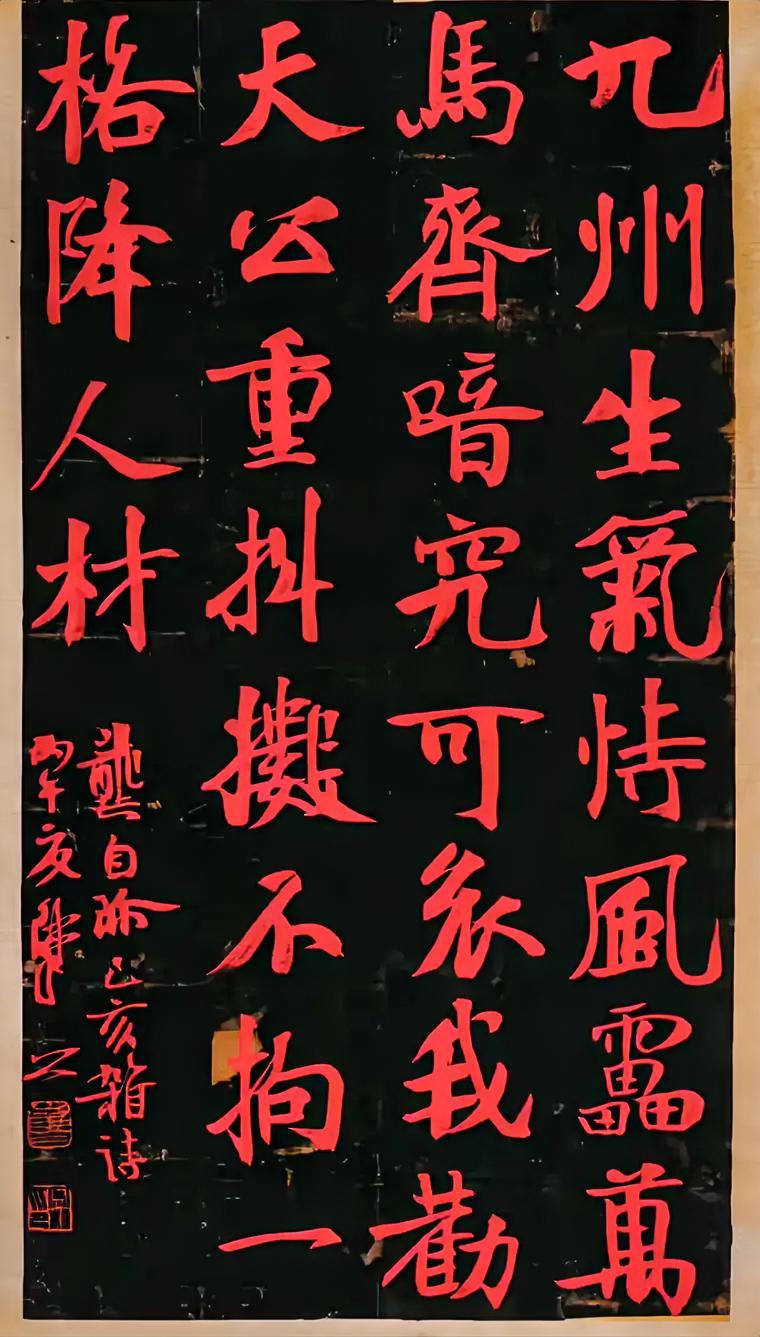 九州生氣恃風靁萬
馬齊喑究可哀我勸
天公重抖擻不拘一
格降人材
龔自珍己亥雜詩